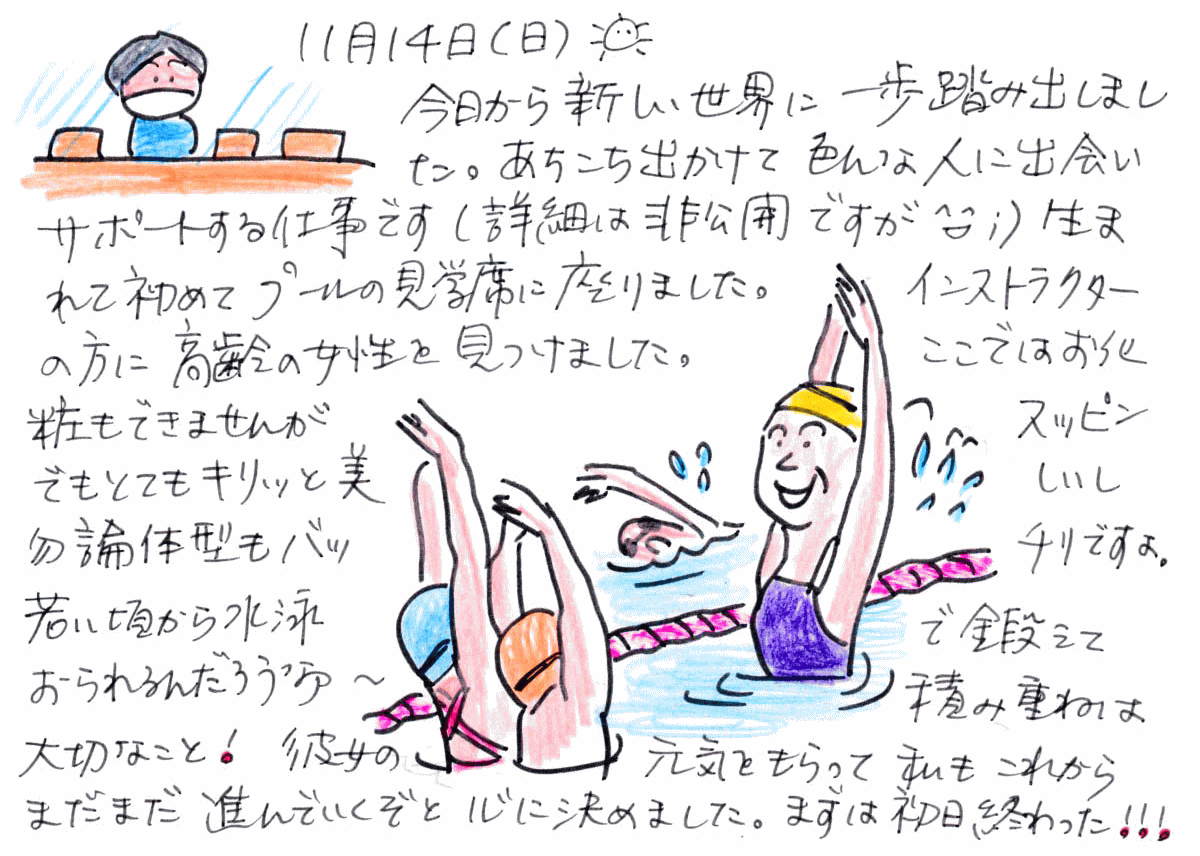 11月14日(日)
今日から新しい世界に一歩踏み出しまし
た。あちこち出かけて色んな人に出会い
サポートする仕事です(詳細は非公開ですが^_^;)生ま
れて初めてプールの見学席に座りました。 インストラクター
の方に高齢の女性を見つけました。 ここではお化
粧もできませんが スッピン
でもとてもキリッと美 しいし
勿論体型もバッ チリですよ。
若い頃から水泳 で鍛えて
おられるんだろうな〜 積み重ねは
大切なこと! 彼女の 元気をもらって 私も これから
まだまだ 進んでいくぞと 心に決めました。まずは初日終わった!!!